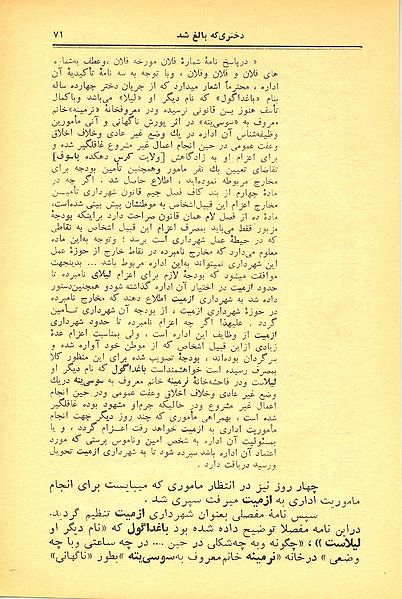 دختری‌که بالغ شد ۷۱
« درپاسخ نامهٔ شمارهٔ فلان مورخهٔ فلان ،وعطف به‌شماره
های فلان و فلان وفلان ، وبا توجه به سه نامهٔ تأکیدیهٔ آن
اداره ، محترماً اشعار میدارد که از جریان دختر چهارده ساله
بنام «باغداگول» که نام دیگر او «لیلا» می‌باشد وباکمال
تأسف هنوز بسن قانونی نرسیده ودر معروفخانهٔ «نرمینه»خانم
معروف به «سوسی‌یته» در اثر یورش ناگهانی و آنی مأمورین
وظیفه‌شناس آن اداره در یك وضع غیر عادی وخلاف اخلاق
وعفت عمومی در حین انجام اعمال غیر مشروع غافلگیر شده و
برای اعزام او به زادگاهش [ولایت کرس دهکده یاسوف]
تقاضای تعیین یك نفر مأمور وهمچنین تأمین بودجه برای
مخارج مربوطه نموده‌اید ، اطلاع حاصل شد . اگر چه در
مادهٔ چهارم از بند کاف فصل جیم قانون شهرداری تأمیـن
مخارج اعزام این قبیل‌اشخاص به موطنشان پیش بینی شده‌است،
مادهٔ ده از فصل لام همان قانون صراحت دارد براینکه بودجهٔ
مزبور فقط می‌باید بمصرف اعزام این قبیل اشخاص به نقاطی
که در حیطهٔ عمل شهرداری است برسد ؛ وتوجه به‌این ماده
معلوم می‌دارد که مخارج نامبرده در نقاط خارج از حوزهٔ عمل
این شهرداری نمیتواند به‌این اداره مربوط باشد ... بدینجهت
موافقت میشود که بودجهٔ لازم برای اعزام لیلای نامبرده تا
حدود ازمیت در اختیار آن اداره گذاشته شودو همچنین‌دستور
داده شد به شهرداری ازمیت اطلاع دهند که مخارج نامبرده
در حوزهٔ شهرداری ازمیت ، از بودجه آن شهرداری تـأمین
گردد . علیهذا اگر چه اعزام نامبرده تا حدود شهرداری
ازمیت از وظایف این اداره است ، ولی بمناسبت اعزام عدهٔ
زیادی ازاین قبیل اشخاص که از موطن خود آواره شده و
سرگردان بوده‌اند ، بودجهٔ تصویب شده برای این منظور کلا
بمصرف رسیده است خواهشمنداست باغداگول که نام دیگر او
لیلاست ودر فاحشه‌خانهٔ نرمینه خانم معروف به سوسی‌یته دریك
وضع غیر عادی وخلاف اخلاق وعفت عمومی ودر حین انجام
اعمال غیر مشروع ودر حالیکه جرم‌او مشهود بوده غافلگیر
شده است ، بهمراهی مأموری که چند روز دیگر جهت انجام
مأموریت اداری به ازمیت خواهد رفت اعـزام گردد ، و یا
بمسئولیت آن اداره به شخص امین وناموس پرستی که مورد
اعتماد آن اداره باشد سپرده شود تا به شهرداری ازمیت تحویل
ورسید دریافت دارد .
چهار روز نیز در انتظار مأموری که میبایست برای انجام
ماموریت اداری به ازمیت میرفت سپری شد .
سپس نامهٔ مفصلی بعنوان شهرداری ازمیت تنظیم گردید.
دراین نامه مفصلا توضیح داده شده بود باغداگول که «نام دیگر او
لیلاست» ، «چگونه وبه چه‌شکلی در حین .... در چه ساعتی وبا چه
وضعی » درخانه «نرمینه خانم‌معروف به‌سوسی‌یته »بطور «ناگهانی»